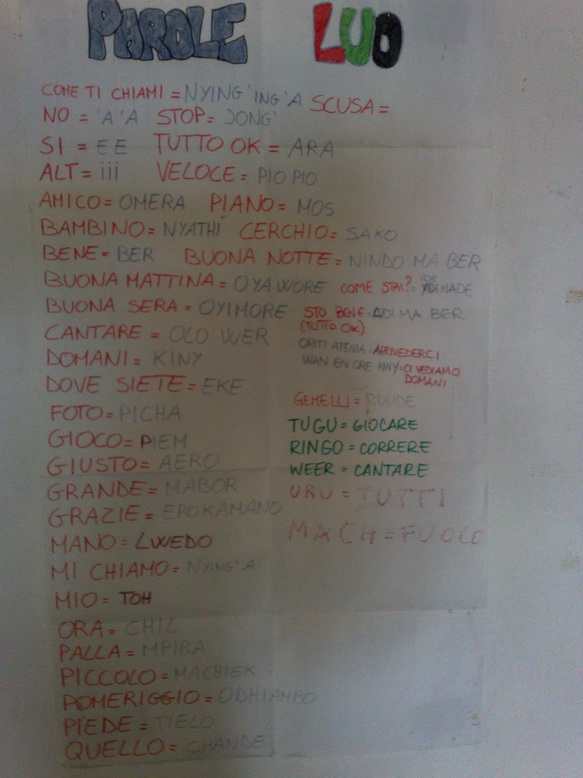 PAROLE LUO
COME TI CHIAMI = NYING'ING'A SCUSA =
NO = 'A'A STOP = JONG'
SI = EE TUTTO OK = ARA
ALT = iii VELOCE = PIO PIO
AMICO = OMERA PIANO = MOS
BAMBINO = NYATHI CERCHIO = SAKO
BENE = BER BUONA NOTTE = NINDO MA BER
BUONA MATTINA = OYAWORE COME STAI? = NADE
BUONA SERA = OYIMORE STO BENE = ADI MA BER
(TUTTO OK)
CANTARE = OLO WER
ORITI ATENIA = ARRIVEDERCI
DOMANI = KINY
WAN EN ORE KINY = CI VEDIAMO
DOMANI
DOVE SIETE = EKE
GEMELLI = RUUDE
FOTO = PICHA
TUGU = GIOCARE
GIOCO = PIEM
RINGO = CORRERE
GIUSTO = AERO
WEER = CANTARE
GRANDE = MABOR
URU = TUTTI
GRAZIE = EROKAMANO
MACH = FUOCO
MANO = LWEDO
MI CHIAMO = NYING'A
MIO = TOH
ORA = CHIL
PALLA = MPIRA
PICCOLO = MACHIEK
POMERIGGIO = ODHIAMBO
PIEDE = TIELO
QUELLO = CHANDE